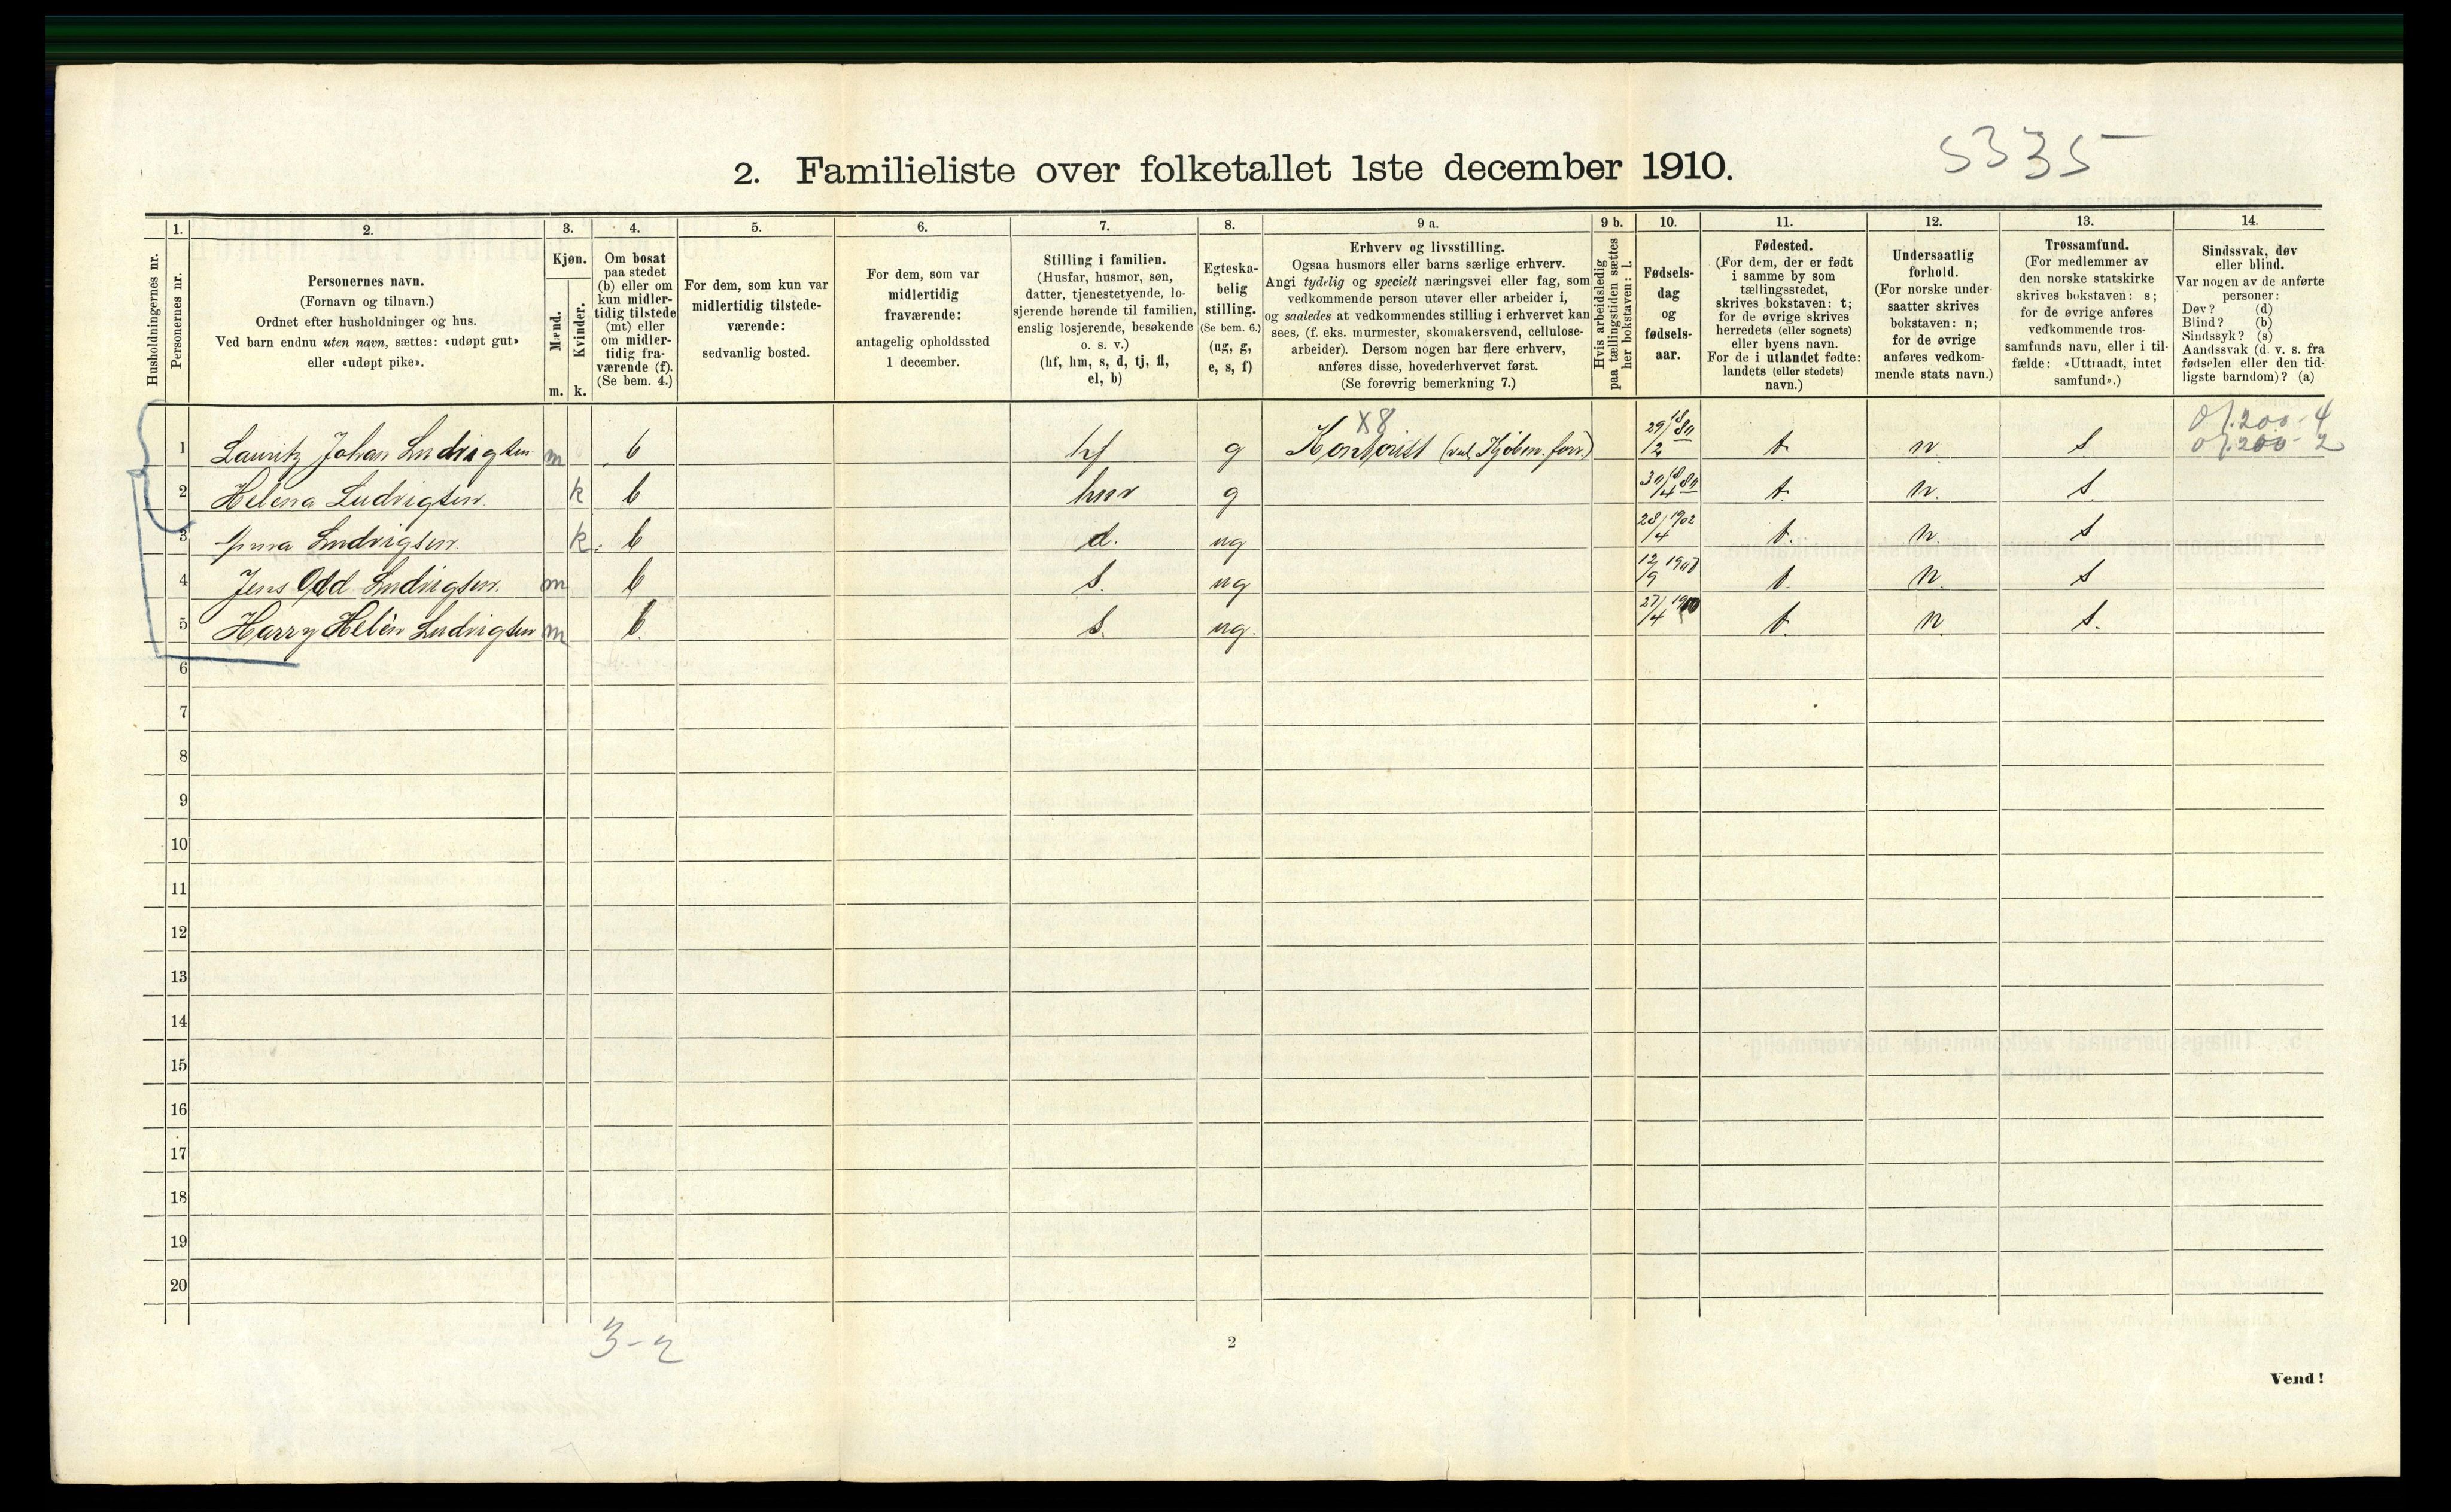 5335
2. Familieliste over folketallet 1ste december 1910.
1. 2. 3. 4. 5. 6. 7. 8. 9 a. 9 b. 10. 11. 12. 13. 14.
Husholdningernes nr.
Personernes nr.
Personernes navn.
(Fornavn og tilnavn.)
Ordnet efter husholdninger og hus.
Ved barn endnu uten navn, sættes: «udøpt gut»
eller «udøpt pike».
Kjøn.
Mænd.
Kvinder.
m. k.
Om bosat
paa stedet
(b) eller om
kun midler-
tidig tilstede
(mt) eller
om midler-
tidig fra-
værende (f).
(Se bem. 4.)
For dem, som kun var
midlertidig tilstede-
værende:
sedvanlig bosted.
For dem, som var
midlertidig
fraværende:
antagelig opholdssted
1 december.
Stilling i familien.
(Husfar, husmor, søn,
datter, tjenestetyende, lo-
sjerende hørende til familien,
enslig losjerende, besøkende
o. s. v.)
(hf, hm, s, d, tj, fl,
el, b)
Egteska-
belig
stilling.
(Se bem. 6.)
(ug, g,
e, s, f)
Erhverv og livsstilling.
Ogsaa husmors eller barns særlige erhverv.
Angi tydelig og specielt næringsvei eller fag, som
vedkommende person utøver eller arbeider i,
og saaledes at vedkommendes stilling i erhvervet kan
sees, (f. eks. murmester, skomakersvend, cellulose-
arbeider). Dersom nogen har flere erhverv,
anføres disse, hovederhvervet først.
(Se forøvrig bemerkning 7.)
Hvis arbeidsledig
paa tællingstiden sættes
her bokstaven: l.
Fødsels-
dag
og
fødsels-
aar.
Fødested.
(For dem, der er født
i samme by som
tællingsstedet,
skrives bokstaven: t;
for de øvrige skrives
herredets (eller sognets)
eller byens navn.
For de i utlandet fødte:
landets (eller stedets)
navn.)
Undersaatlig
forhold.
(For norske under-
saatter skrives
bokstaven: n;
for de øvrige
anføres vedkom-
mende stats navn.)
Trossamfund.
(For medlemmer av
den norske statskirke
skrives bokstaven: s;
for de øvrige anføres
vedkommende tros-
samfunds navn, eller i til-
fælde: «Uttraadt, intet
samfund».)
Sindssvak, døv
eller blind.
Var nogen av de anførte
personer:
Døv? (d)
Blind? (b)
Sindssyk? (s)
Aandssvak (d. v. s. fra
fødselen eller den tid-
ligste barndom)? (a)
X8
1 Lauritz Johan Ludvigsen m b hf g Kontorist (ved Kjøbm. forr.) 29/2 1880 t n s
2 Helena Ludvigsen k b hm g 30/4 1880 t. n. s.
3 Ludvigsen k b d. ug 28/4 1902 t. n. s
4 Jens Odd Ludvigsen. m b s. ug 12/9 t. n. s
5 Harry Helèn Ludvigsen m b s. ug. 27/4 1910 t. n. s.
6
7
8
9
10
11
12
13
14
15
16
17
18
19
20
3-2
2
Vend!